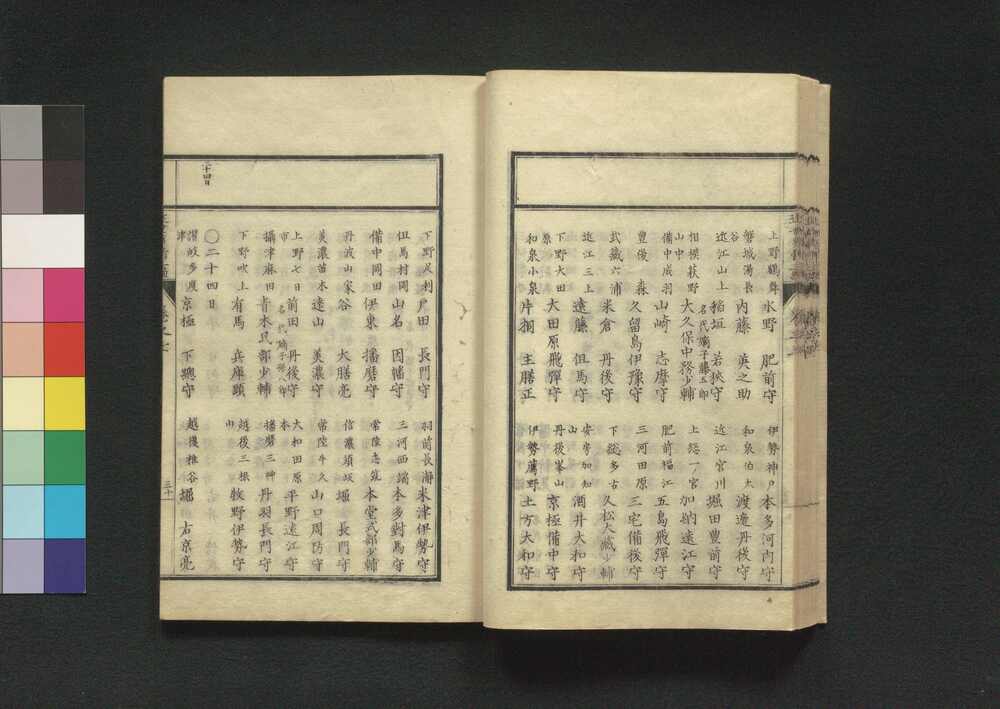 上野鶴舞 水野 肥前守 伊勢神戸 本多河内守
磐城湯長谷 内藤 英之助 和泉伯太 渡邉丹後守
近江山上 稲垣 若狹守 近江宮川 堀田豊前守
名代嫡子藤五郎
相模荻野山中 大久保中務少輔 上総一ノ宮 加納遠江守
備中成羽 山崎 志摩守 肥前福江 五島飛彈守
豊後 森 久留島伊豫守 三河田原 三宅備後守
武藏六浦 米倉 丹後守 下総多古 久松大藏少輔
近江三上 遠藤 但馬守 安房加知山 酒井大和守
下野大田原 大田原飛彈守 丹後峯山 京極備中守
和泉小泉 片桐 主膳正 伊勢薦野 土方大和守
下野足利 戸田 長門守 羽前長瀞 米津伊勢守
但馬村岡 山名 因幡守 三河西端 本多對馬守
備中岡田 伊東 播磨守 常陸志筑 本堂式部少輔
丹波山家 谷 大膳亮 信濃須坂 堀 長門守
美濃苗木 遠山 美濃守 常陸牛久 山口周防守
上野七日市 前田 丹後守 大和田原本 平野遠江守
攝津麻田 青木民部少輔 播磨三艸 丹羽長門守
下野吹上 有馬 兵庫頭 越後三根山 牧野伊勢守
二十四日
〇二十四日
讃岐多度津 京極 下總守 越後椎谷 堀 右京亮
三十一